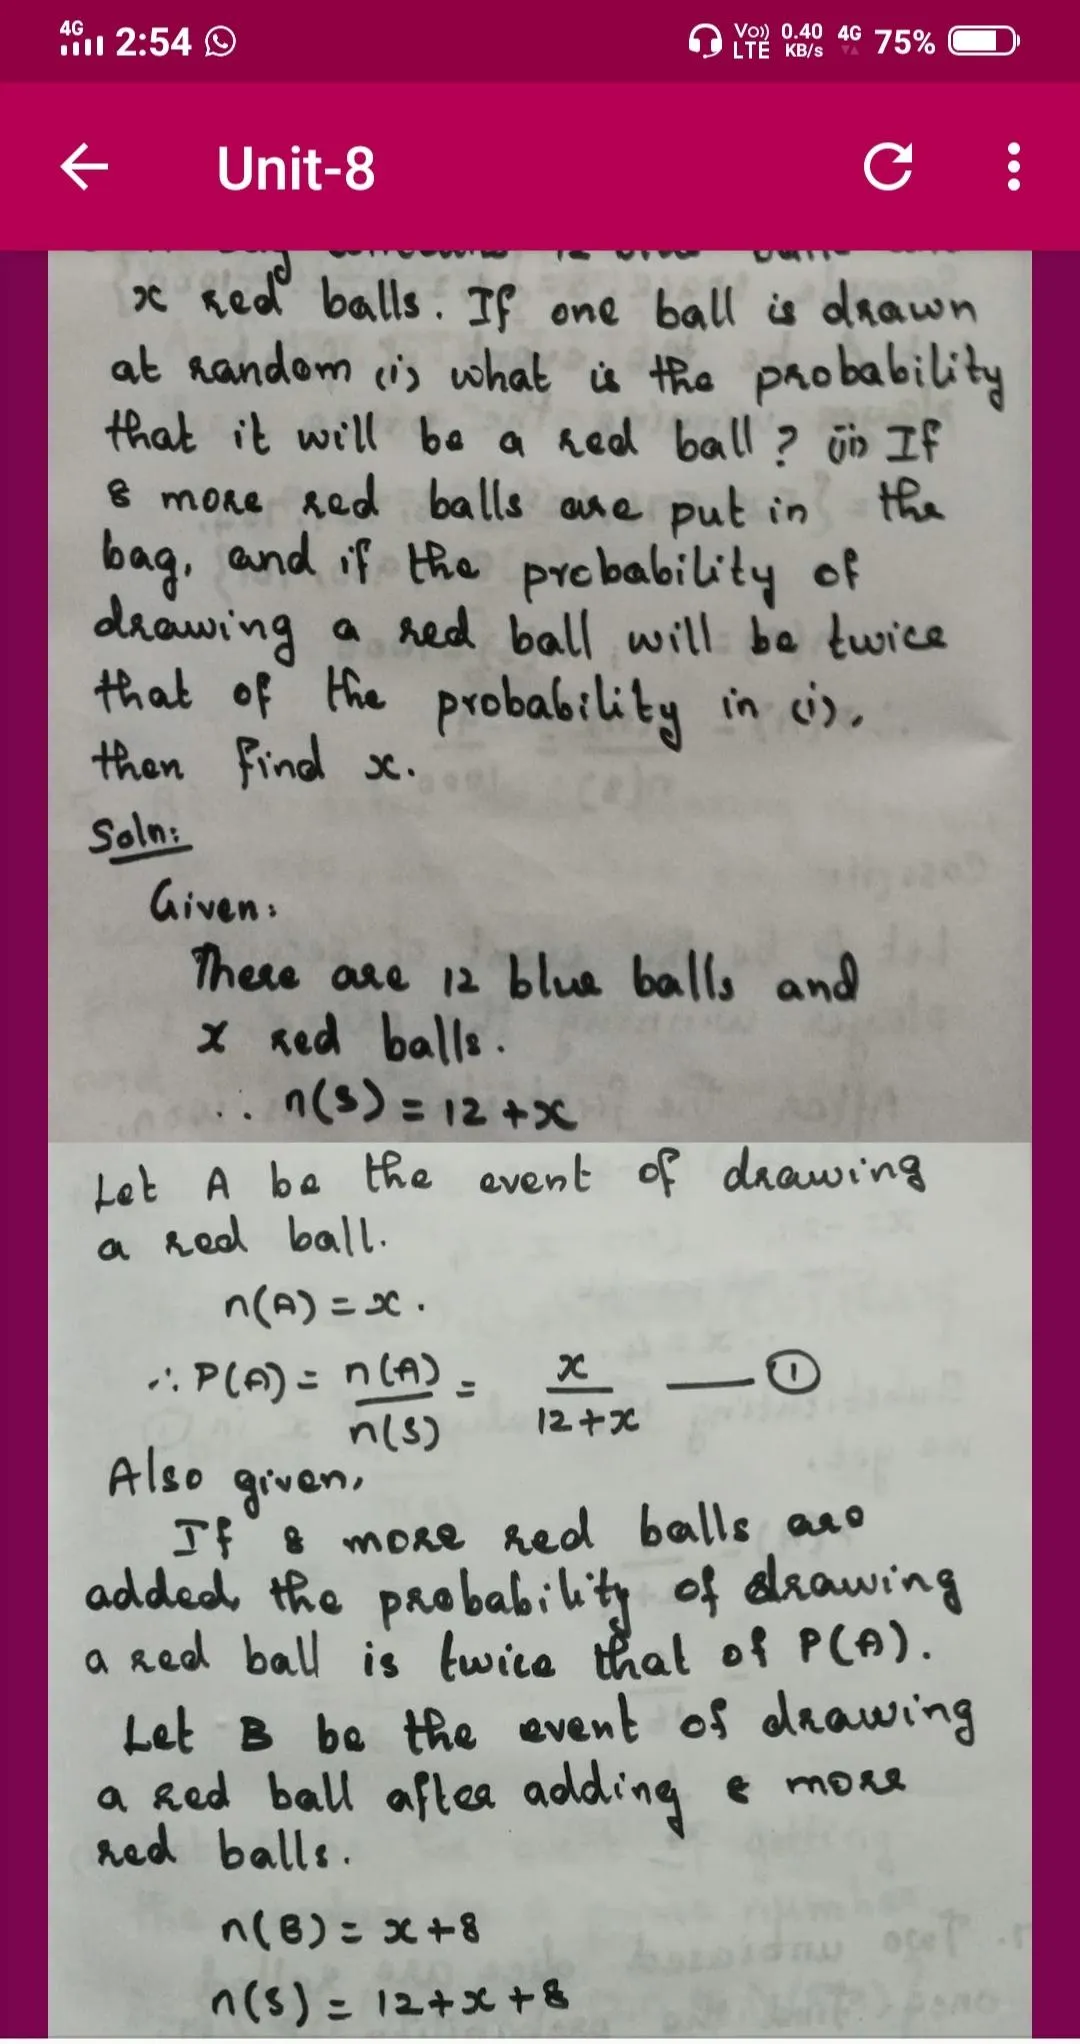 4G 2:54 Vo)) LTE 0.40 KB/s 4G 75%
Unit-8
x red balls. If one ball is drawn
at random (i) what is the probability
that it will be a red ball? (ii) If
8 more red balls are put in the
bag, and if the probability of
drawing a red ball will be twice
that of the probability in (i),
then find x.
Soln:
Given:
There are 12 blue balls and
x red balls.
∴ n(S) = 12 + x
Let A be the event of drawing
a red ball.
n(A) = x.
∴ P(A) = n(A)/n(S) = x/12+x — ①
Also given,
If 8 more red balls are
added, the probability of drawing
a red ball is twice that of P(A).
Let B be the event of drawing
a red ball after adding 8 more
red balls.
n(B) = x + 8
n(S) = 12 + x + 8